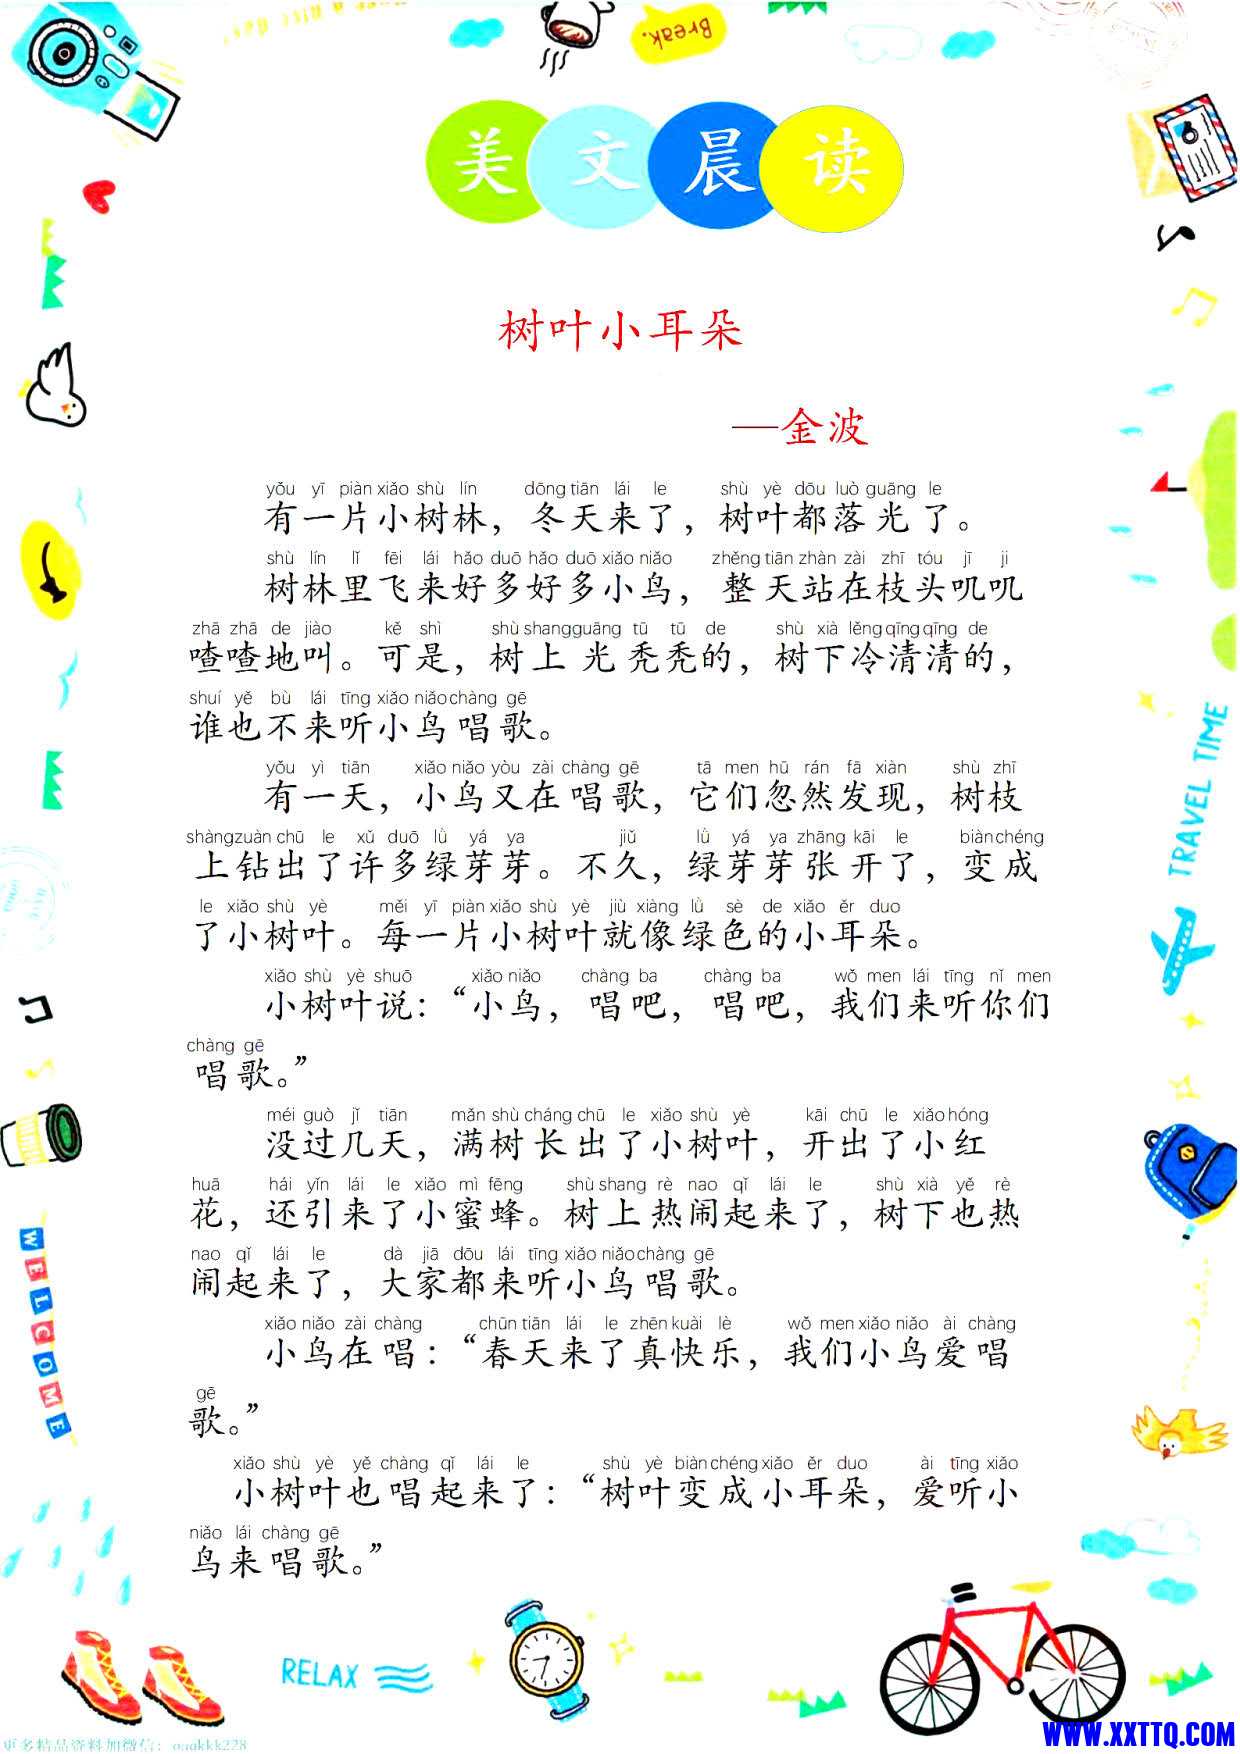 Have a nice day!
Break.
美文晨读
树叶小耳朵
—金波
yǒu yī piàn xiǎo shù lín dōng tiān lái le shù yè dōu luò guāng le
有一片小树林，冬天来了，树叶都落光了。
shù lín lǐ fēi lái hǎo duō hǎo duō xiǎo niǎo zhěng tiān zhàn zài zhī tóu jī ji
树林里飞来好多好多小鸟，整天站在枝头叽叽
zhā zhā de jiào kě shì shù shang guāng tū tū de shù xià lěng qīng qīng de
喳喳地叫。可是，树上光秃秃的，树下冷清清的，
shuí yě bù lái tīng xiǎo niǎo chàng gē
谁也不来听小鸟唱歌。
yǒu yì tiān xiǎo niǎo yòu zài chàng gē tā men hū rán fā xiàn shù zhī
有一天，小鸟又在唱歌，它们忽然发现，树枝
shàng zuàn chū le xǔ duō lǜ yá ya jiǔ lǜ yá ya zhāng kāi le biàn chéng
上钻出了许多绿芽芽。不久，绿芽芽张开了，变成
le xiǎo shù yè měi yī piàn xiǎo shù yè jiù xiàng lǜ sè de xiǎo ěr duo
了小树叶。每一片小树叶就像绿色的小耳朵。
xiǎo shù yè shuō xiǎo niǎo chàng ba chàng ba wǒ men lái tīng nǐ men
小树叶说：“小鸟，唱吧，唱吧，我们来听你们
chàng gē
唱歌。”
méi guò jǐ tiān mǎn shù cháng chū le xiǎo shù yè kāi chū le xiǎo hóng
没过几天，满树长出了小树叶，开出了小红
huā hái yǐn lái le xiǎo mì fēng shù shang rè nao qǐ lái le shù xià yě rè
花，还引来了小蜜蜂。树上热闹起来了，树下也热
nao qǐ lái le dà jiā dōu lái tīng xiǎo niǎo chàng gē
闹起来了，大家都来听小鸟唱歌。
xiǎo niǎo zài chàng chūn tiān lái le zhēn kuài lè wǒ men xiǎo niǎo ài chàng
小鸟在唱：“春天来了真快乐，我们小鸟爱唱
gē
歌。”
xiǎo shù yè yě chàng qǐ lái le shù yè biàn chéng xiǎo ěr duo ài tīng xiǎo
小树叶也唱起来了：“树叶变成小耳朵，爱听小
niǎo lái chàng gē
鸟来唱歌。”
TRAVEL TIME
WELCOME
RELAX
更多精品资料加微信：
WWW.XXTTQ.COM